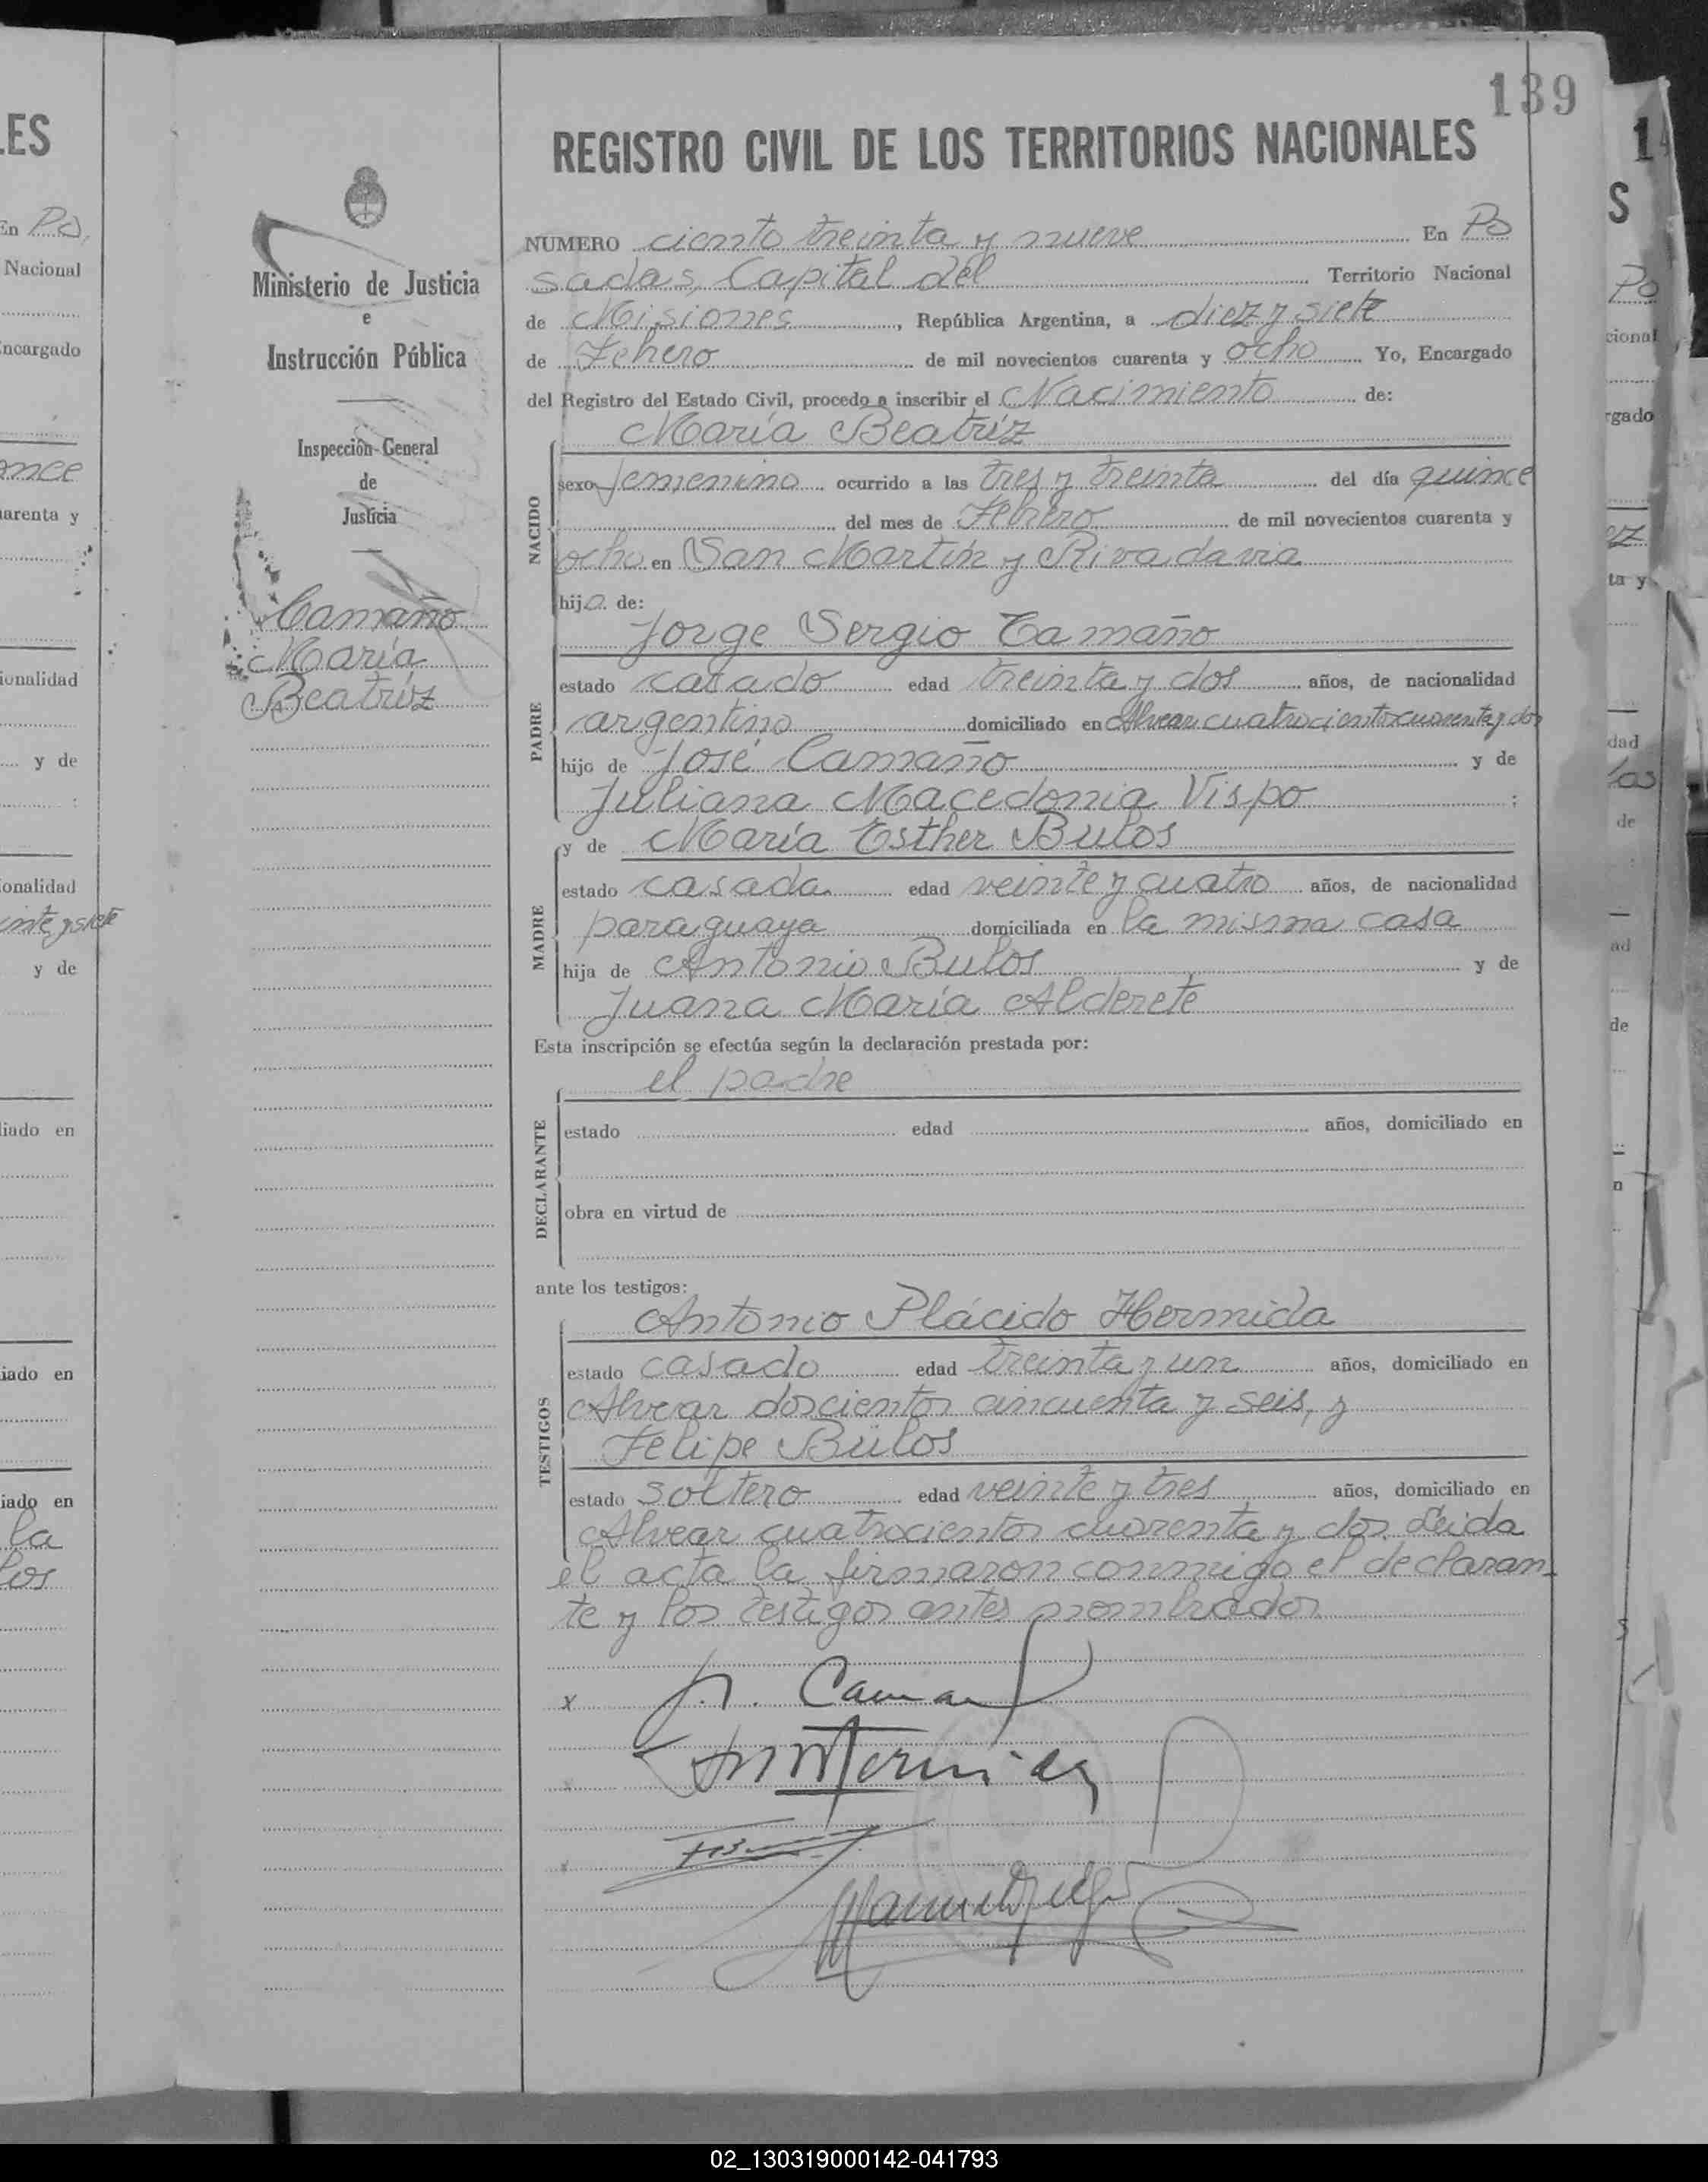 139
REGISTRO CIVIL DE LOS TERRITORIOS NACIONALES
Ministerio de Justicia
e
Instrucción Pública
Inspección General
de
Justicia
Camaño
María
Beatríz
NUMERO ciento treinta y nueve En Po
sadas, Capital del Territorio Nacional
de Misiones, República Argentina, a diez y siete
de Febrero de mil novecientos cuarenta y ocho Yo, Encargado
del Registro del Estado Civil, procedo a inscribir el Nacimiento de:
María Beatríz
NACIDO
sexo femenino ocurrido a las tres y treinta del día quince
del mes de Febrero de mil novecientos cuarenta y
ocho en San Martín y Rivadavia
hija de:
Jorge Sergio Camaño
PADRE
estado casado edad treinta y dos años, de nacionalidad
argentino domiciliado en Alvear cuatrocientos cuarenta y dos
hijo de José Camaño y de
Juliana Macedonia Vispo ;
y de María Esther Bulos
MADRE
estado casada edad veinte y cuatro años, de nacionalidad
paraguaya domiciliada en la misma casa
hija de Antonio Bulos y de
Juana María Alderete
Esta inscripción se efectúa según la declaración prestada por:
el padre
DECLARANTE
estado edad años, domiciliado en
obra en virtud de
ante los testigos:
Antonio Plácido Hermida
TESTIGOS
estado casado edad treinta y un años, domiciliado en
Alvear doscientos cincuenta y seis, y
Felipe Bulos
estado soltero edad veinte y tres años, domiciliado en
Alvear cuatrocientos cuarenta y dos. Leida
el acta la firmaron conmigo el declaran-
te y los testigos antes nombrados
x
02_130319000142-041793